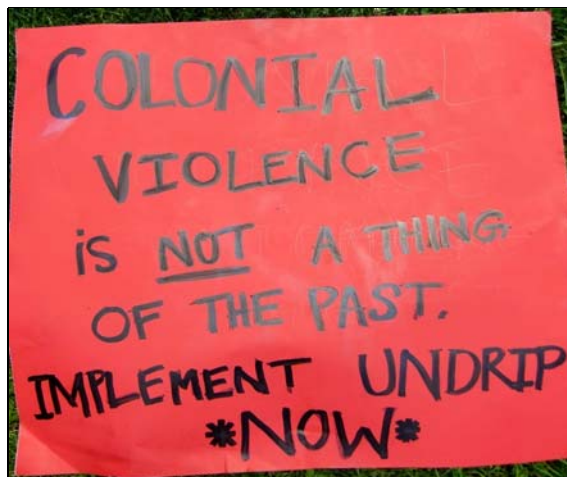 COLONIAL
VIOLENCE
is NOT A THING
OF THE PAST.
IMPLEMENT UNDRIP
*NOW*